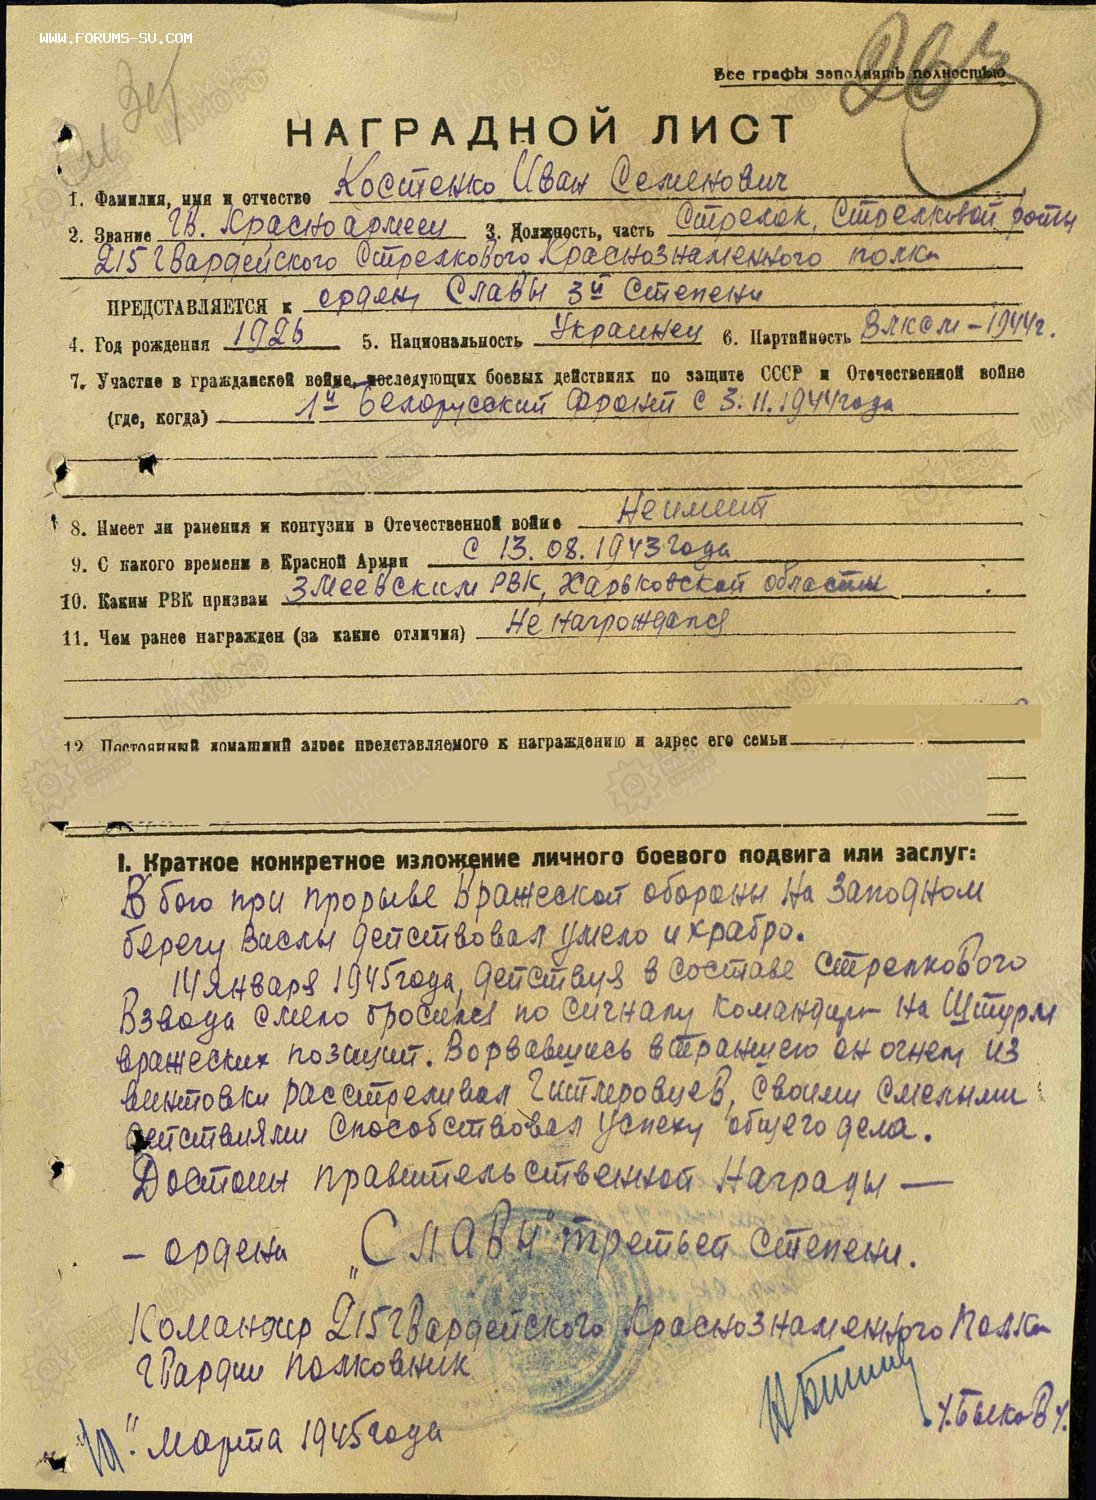 WWW.FORUMS-SU.COM
Все графы заполнять полностью
НАГРАДНОЙ ЛИСТ
1. Фамилия, имя и отчество Костенко Иван Семенович
2. Звание Гв. Красноармеец 3. Должность, часть Стрелок, Стрелковой роты
215 Гвардейского Стрелкового Краснознаменного полка
ПРЕДСТАВЛЯЕТСЯ к орден Славы 3й Степени
4. Год рождения 1926 5. Национальность Украинец 6. Партийность ВЛКСМ-1944г.
7. Участие в гражданской войне, последующих боевых действиях по защите СССР и Отечественной войне
(где, когда) 1й Белорусский фронт с 3.11.1944 года
8. Имеет ли ранения и контузии в Отечественной войне Не имеет
9. С какого времени в Красной Армии С 13.08.1943 года
10. Каким РВК призван Змеевским РВК, Харьковской области
11. Чем ранее награжден (за какие отличия) Не награждался
12. Постоянный домашний адрес представляемого к награждению и адрес его семьи
I. Краткое конкретное изложение личного боевого подвига или заслуг:
В бою при прорыве Вражеской обороны на Западном
берегу Вислы действовал умело и храбро.
14 января 1945 года, действуя в составе стрелкового
Взвода смело бросился по сигналу командира на Штурм
вражеских позиций. Ворвавшись в траншею он огнем из
винтовки расстреливал Гитлеровцев, Своими Смелыми
действиями Способствовал Успеху общего дела.
Достоин правительственной Награды —
— ордена „СЛАВЫ" третьей степени.
Командир 215 Гвардейского Краснознаменного Полка
Гвардии полковник
/.Быков/.
" Марта 1945 года